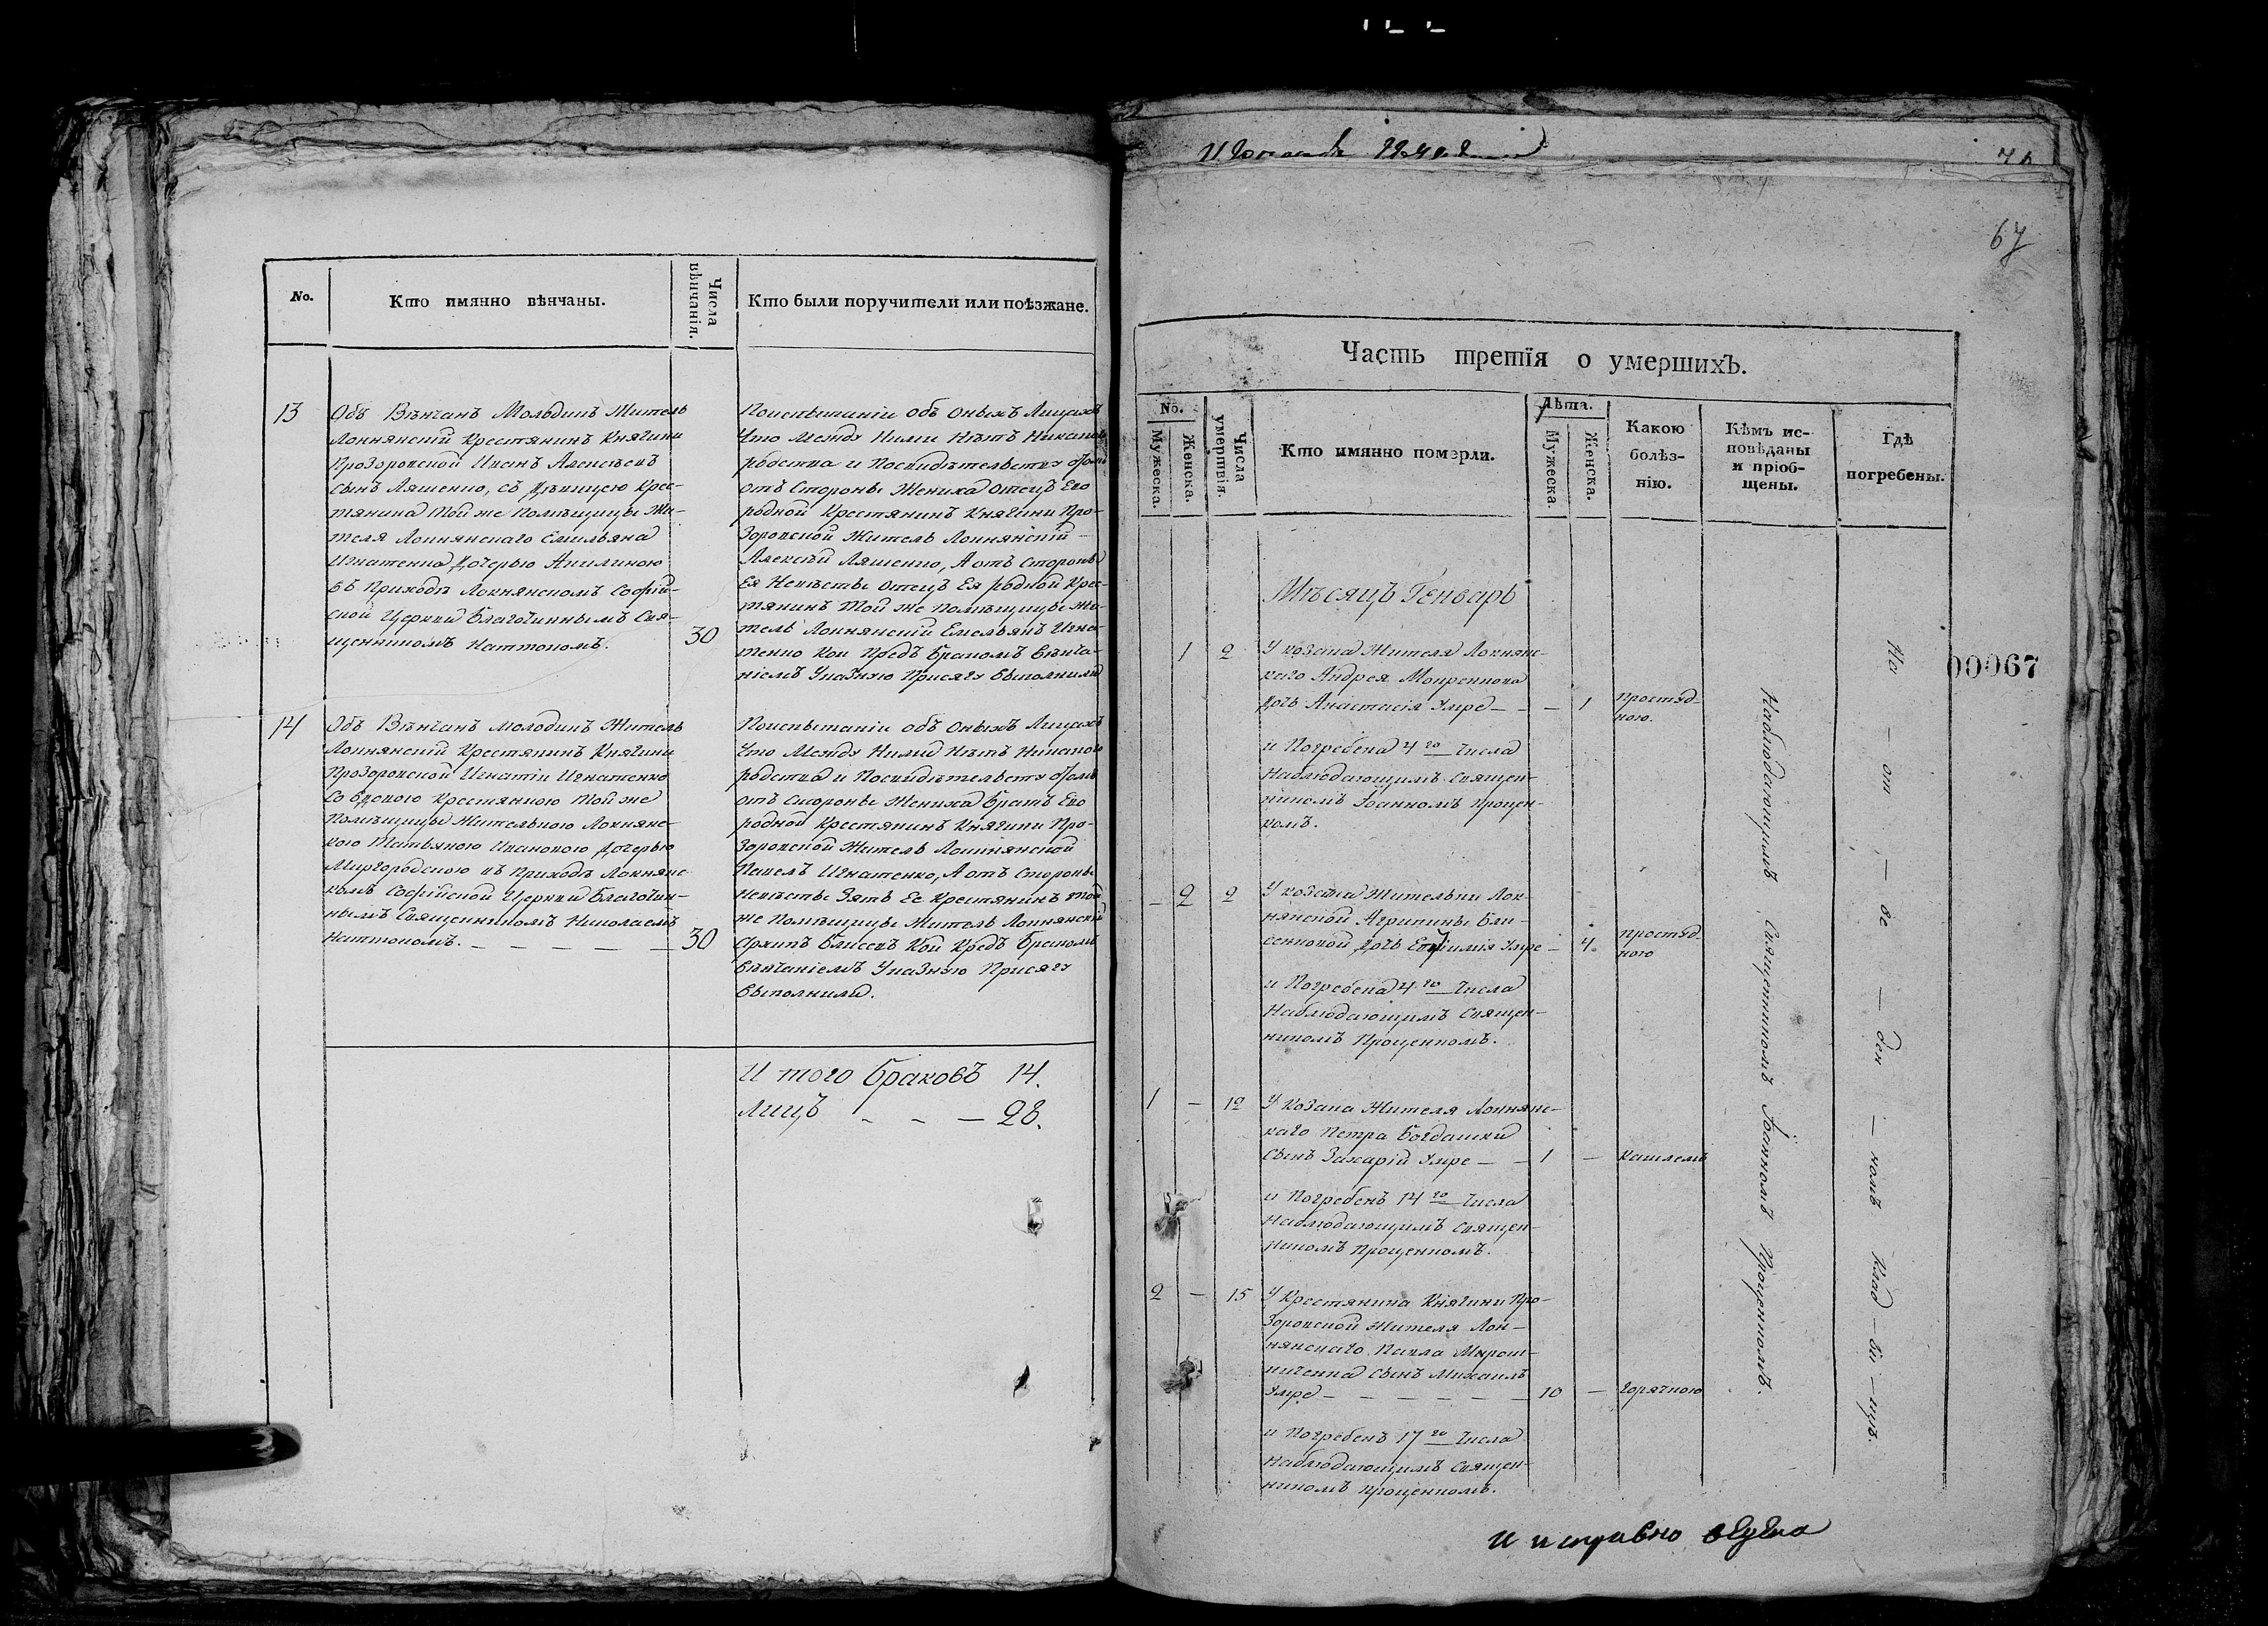 No.
Кто имянно вѣнчаны.
Числа вѣнчанія.
Кто были поручители или поѣзжане.
13
Объ Вѣнчанъ Молодикъ Житель
Локнянскій Крестянинъ Княгини
Прозоровской Иванъ Алексѣевъ
Сынъ Ляшенко, съ Дѣвицею Крес-
тянина Той же Помѣщицы Жи-
теля Локнянскаго Емильяна
Игнатенка Дочерью Акилиною
въ Приходѣ Локнянскомъ Софій-
ской Церкви Благочиннымъ Свя-
щенникомъ
30
Поиспытаніи объ оныхъ Лицахъ
Что Между Ними Нѣтъ Никакого
родства и Посвидѣтельству
отъ Стороны Жениха Отецъ Его
родной Крестянинъ Княгини Про-
зоровской Житель Локнянскій
Алексѣй Ляшенко, А отъ Стороны
Ея Невѣсты Отецъ Ея родной Крес-
тянинъ Той же Помѣщицы Жи-
тель Локнянскій Емельянъ Игна-
тенко Кои Предъ Бракомъ Вѣнча-
ніемъ Указную Присягу Выполнили
14
Объ Вѣнчанъ Молодикъ Житель
Локнянскій Крестянинъ Княгини
Прозоровской Игнатіи Игнатенко
Со Вдовою Крестянкою Той же
Помѣщицы Жителькою Локнянс-
кою Татьяною Ивановою Дочерью
Миргородскою въ Приходѣ Локнянс-
комъ Софійской Церкви Благочин-
нымъ Священникомъ Николаемъ
30
Поиспытаніи объ оныхъ Лицахъ
Что Между Ними Нѣтъ Никакого
родства и Посвидѣтельству
отъ Стороны Жениха Братъ Его
родной Крестянинъ Княгини Про-
зоровской Житель Локнянской
Павелъ Игнатенко, А отъ Стороны
Невѣсты Зять Ее Крестянинъ Той
же Помѣщицы Житель Локнянскій
Архипъ Кои Предъ Бракомъ
Вѣнчаніемъ Указную Присягу
Выполнили.
И того Браковъ 14.
Лицъ - - - 28.
67
Часть третія о умершихъ.
No.
Мужеска.
Женска.
Числа умертвія.
Кто имянно померли.
Лѣта.
Мужеска.
Женска.
Какою болѣз-
нію.
Кѣмъ ис-
повѣданы
и пріоб-
щены.
Гдѣ
погребены.
Мѣсяцъ Генварь
1 2
У козака Жителя Локнянс-
каго Андрея Мокренкова
дочь Анастасія Умре - - - 1 простуд-
ною.
и Погребена 4го Числа
Наблюдающимъ Священ-
никомъ Іоанномъ Процен-
комъ.
- 2 2
У козачки Жительки Лок-
нянской Агрипины
дочь Умре - 4. простуд-
ною
и Погребена 4го Числа
Наблюдающимъ Священ-
никомъ Проценкомъ.
1 - 12
У Козака Жителя Локнянс-
каго Петра Богдашки
Сынъ Захарій Умре - - 1 - кашлемъ
и Погребенъ 14го Числа
Наблюдающимъ Священ-
никомъ Проценкомъ.
2 - 15
У Крестянина Княгини Про-
зоровской Жителя Лок-
нянскаго Павла Мирош-
ниченка Сынъ Михаилъ
Умре - - - - - - 10 - горячкою
и Погребенъ 17го Числа
Наблюдающимъ Священ-
никомъ Проценкомъ.
Наблюдающимъ Священникомъ Іоанномъ Проценкомъ.
00067